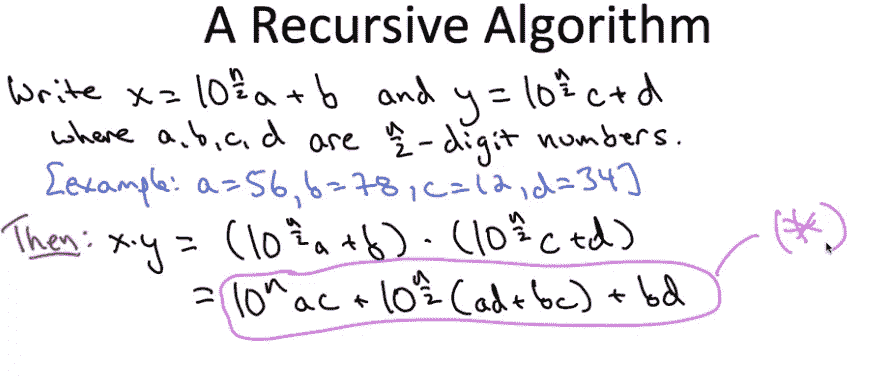 A Recursive Algorithm
Write x = 10^{n/2} a + b and y = 10^{n/2} c + d
where a, b, c, d are n/2-digit numbers.
[example: a=56, b=78, c=12, d=34]
Then: x·y = (10^{n/2} a + b) · (10^{n/2} c + d) (*)
= 10^n ac + 10^{n/2} (ad + bc) + bd